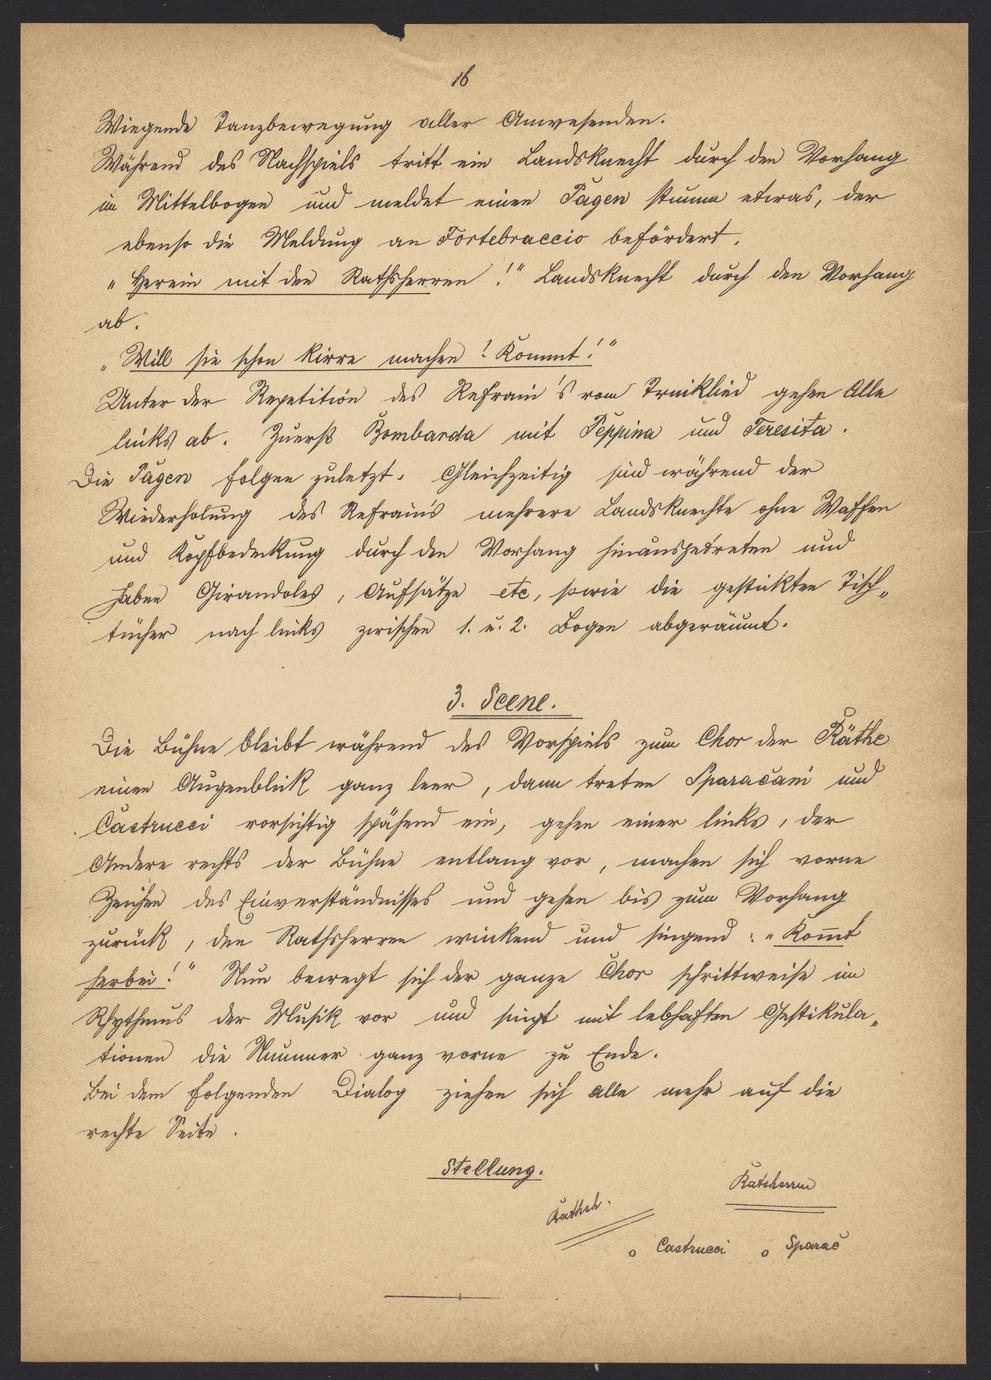 16
Wiegende Tanzbewegung aller Anwesenden.
Während des Nachspiels tritt ein Landsknecht durch den Vorhang
im Mittelbogen und meldet einen Pagen stumm etwas, der
ebenso die Meldung an Fortebraccio befördert.
„Herein mit den Rathsherren!“ Landsknecht durch den Vorhang
ab.
„Will sie schon kirre machen! Kommt!“
Unter der Repetition des Refrain's vom Trinklied gehen Alle
links ab. Zuerst Bombarda mit Peppina und Teresita.
Die Pagen folgen zuletzt. Gleichzeitig sind während der
Wiederholung des Refrains mehrere Landsknechte ohne Waffen
und Kopfbedeckung durch den Vorhang hinausgetreten und
haben Girandoles, Aufsätze etc, sowie die gestickten Tisch„
tücher nach links zwischen 1. u. 2. Bogen abgeräumt.
3. Scene.
Die Bühne bleibt während des Vorspiels zum Chor der Räthe
einen Augenblick ganz leer, dann treten Sparacani und
Castrucci vorsichtig spähend ein, gehen einer links, der
Andere rechts der Bühne entlang vor, machen sich vorne
Zeichen des Einverständnisses und gehen bis zum Vorhang
zurück, den Rathsherren winkend und singend: „Kom̅t
herbei!“ Nun bewegt sich der ganze Chor schrittweise im
Rhythmus der Musik vor und singt mit lebhaften Gestikula„
tionen die Nummer ganz vorne zu Ende.
Bei dem folgenden Dialog ziehen sich alle mehr auf die
rechte Seite.
Stellung.
Ratsherren
Rathsh.
o Castrucci o Sparac